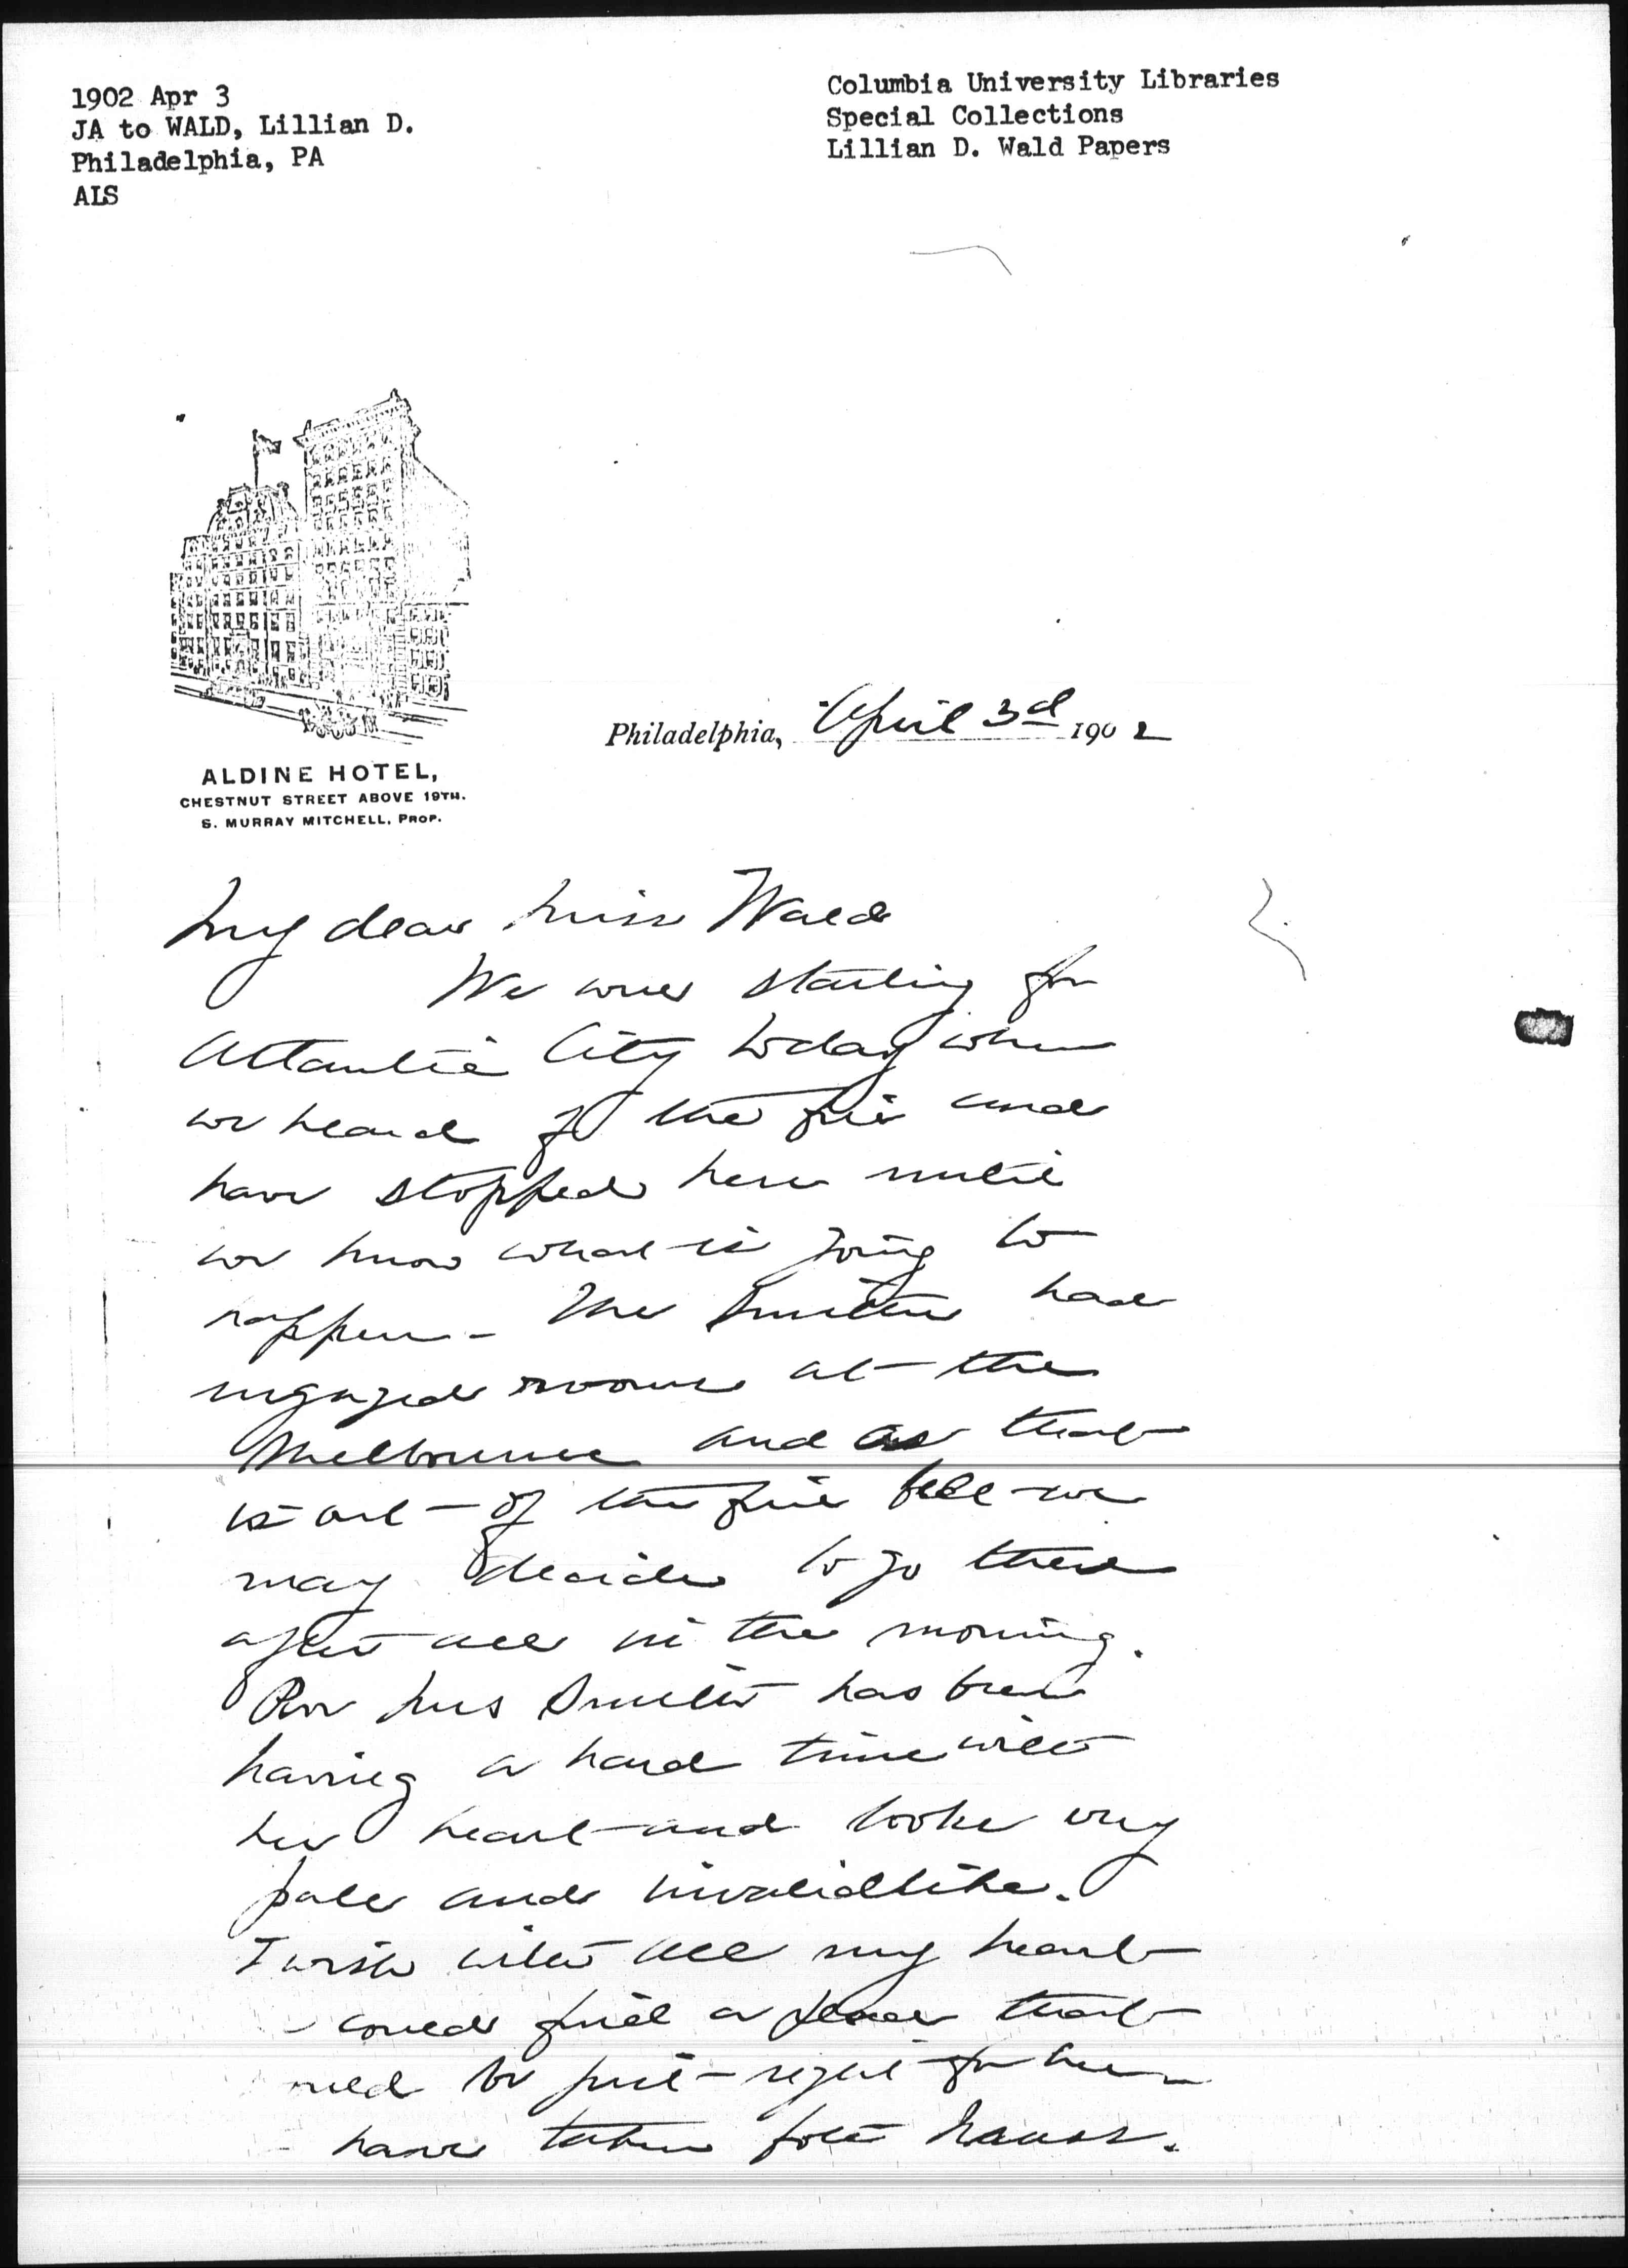 1902 Apr 3
JA to WALD, Lillian D.
Philadelphia, PA
ALS
Columbia University Libraries
Special Collections
Lillian D. Wald Papers
Philadelphia, April 3d 1902
ALDINE HOTEL,
CHESTNUT STREET ABOVE 19TH.
S. MURRAY MITCHELL, PROP.
My dear Miss Wald
We were starting for
Atlantic City today when
we heard of the fire and
have stopped here until
we know what is going to
happen - The Smiths had
engaged rooms at the
Melbourne and as that
is out of the fire belt we
may decide to go there
after all in the morning.
Poor Mrs Smith has been
having a hard time with
her heart and looks very
pale and invalidlike.
I wish with all my heart
could find a place that
would be just right for her
have taken